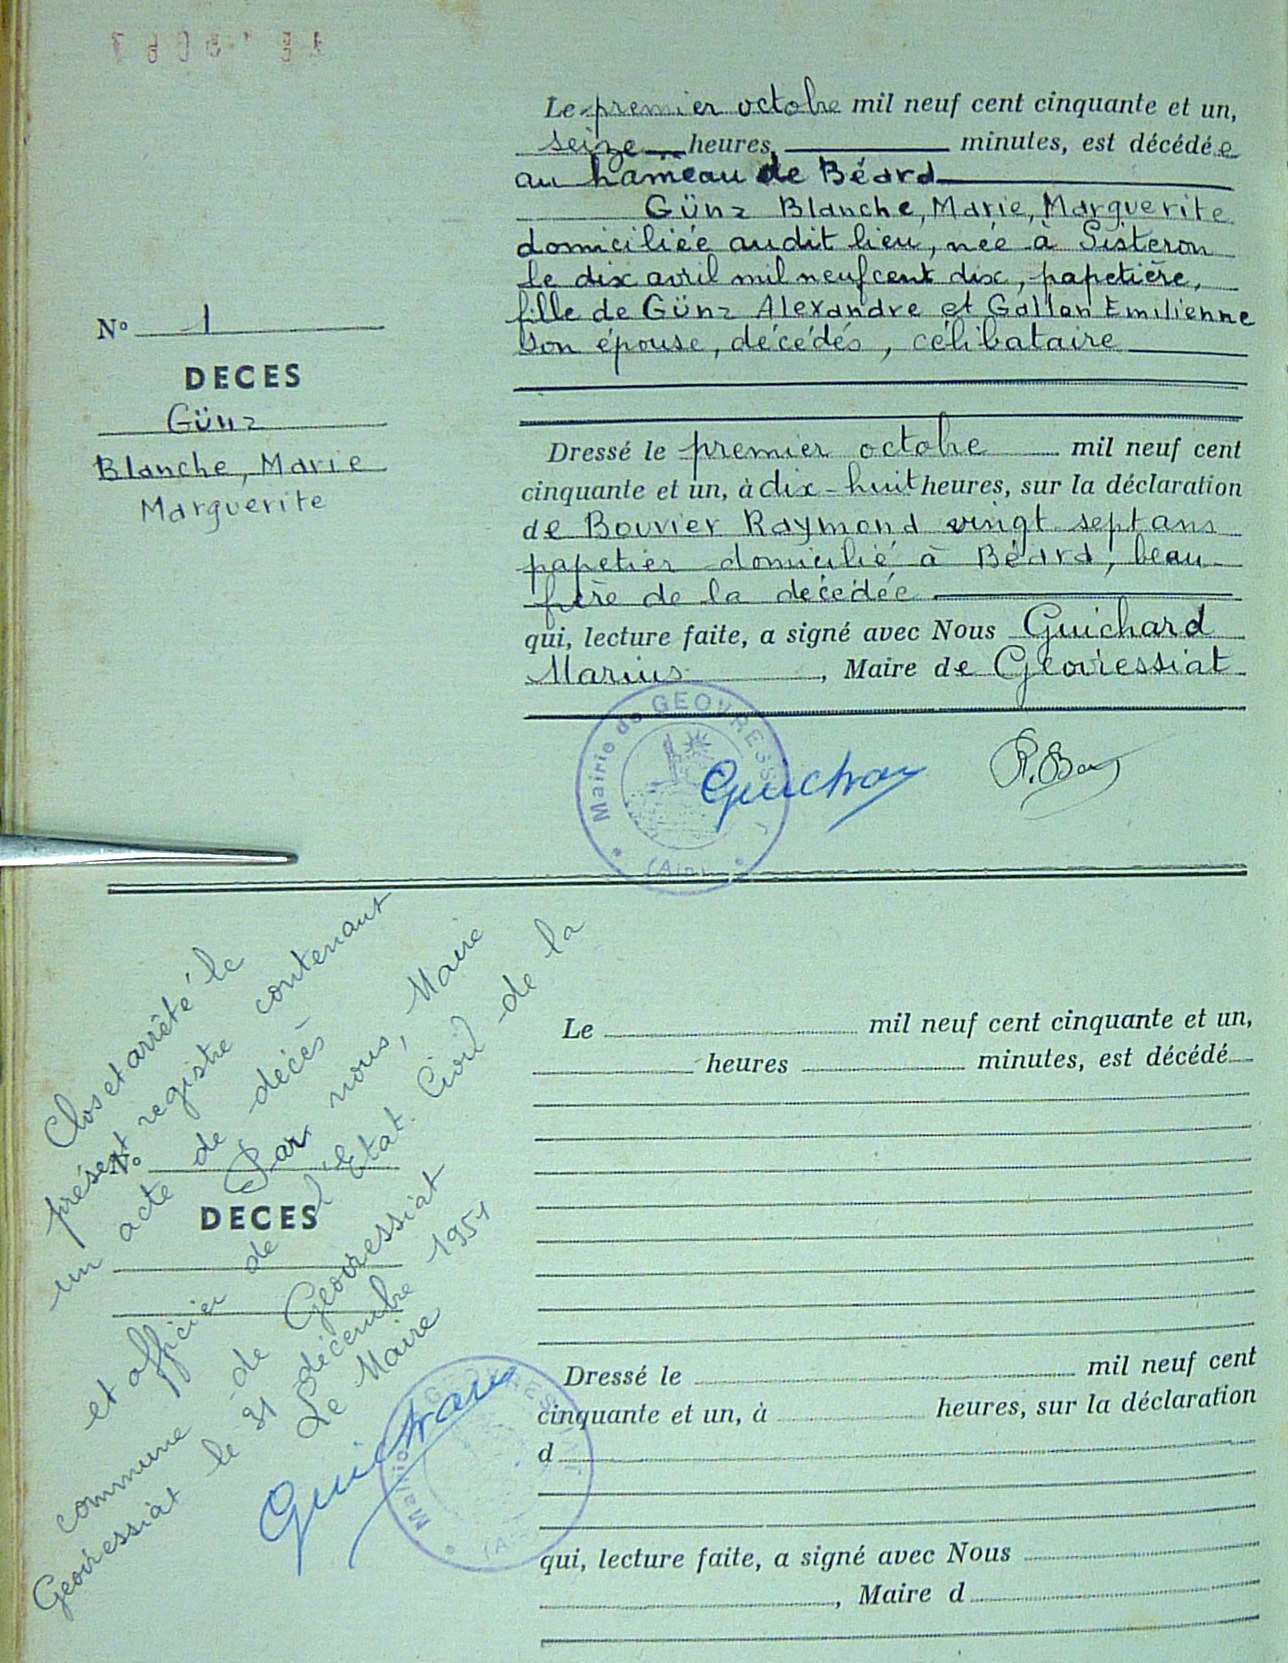 Le premier octobre mil neuf cent cinquante et un,
seize heures, minutes, est décédée
au hameau de Béard
Günz Blanche, Marie, Marguerite
domiciliée audit lieu, née à Sisteron
le dix avril mil neuf cent dix, papetière,
fille de Günz Alexandre et Gallan Emilienne
son épouse, décédés, célibataire
N° 1
DECES
Günz
Blanche, Marie
Marguerite
Dressé le premier octobre mil neuf cent
cinquante et un, à dix-huit heures, sur la déclaration
de Bouvier Raymond vingt sept ans
papetier domicilié à Béard, beau
frère de la décédée
qui, lecture faite, a signé avec Nous Guichard
Marius, Maire de Géovressiat
Mairie de GEOVRESSIAT
(Ain)
Clos et arrêté le
présent registre contenant
un acte de décès
Par nous, Maire
et officier de l'Etat Civil de la
commune de Geovressiat
Geovressiat le 31 décembre 1951
Le Maire
N°
DECES
Le mil neuf cent cinquante et un,
heures minutes, est décédé
Dressé le mil neuf cent
cinquante et un, à heures, sur la déclaration
d
qui, lecture faite, a signé avec Nous
, Maire d